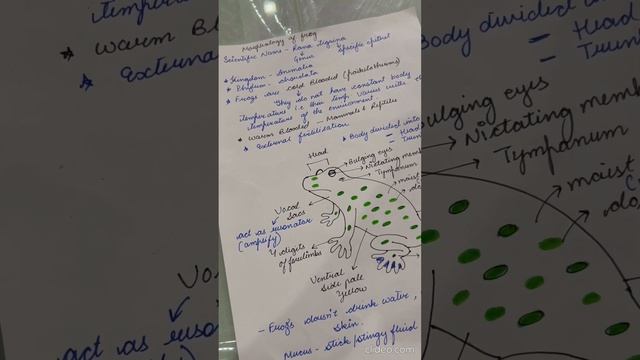 Morphology of frog
Scientific Name - Rana tigrina
Genus Specific epithet
* Kingdom - Animalia
* Phylum - chordata
* Frogs are cold Blooded (poikilotherms)
They do not have constant body
temperature i.e their temp. Varies with
temperature of the environment.
* Warm Blooded - Mammals & Reptiles
* External fertilisation
* Body divided into
- Head
- Trun
Head
Bulging eyes
Nictating mem
Tympanum
moist
Vocal
Sacs
act as resonator
(amplify)
4 digits
of forelimbs
Ventral
Side pale
Yellow
- Frogs doesn't drink water,
skin.
Mucus - stick/stingy fluid
clideo.com
temperature
* Warm Blooded
* External
Body divided
- Head
- Trun
Bulging eyes
Nictating memb
Tympanum
moist
Vo
act as reson
(amplify)